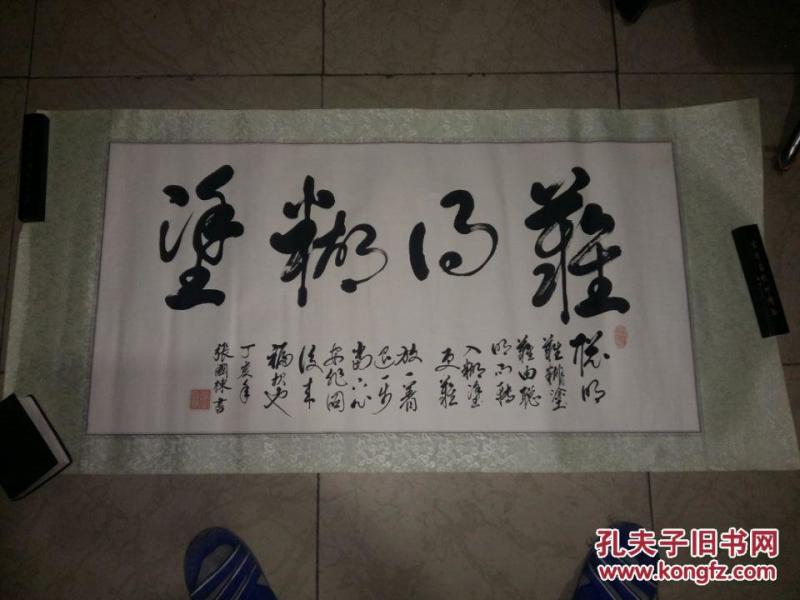 難得糊塗
聰明
難糊塗
難由聰
明而轉
入糊塗
更難
放一着
退一步
當下心
安非圖
後来
福报也
丁亥年
張國棟書
孔夫子旧书网
www.kongfz.com